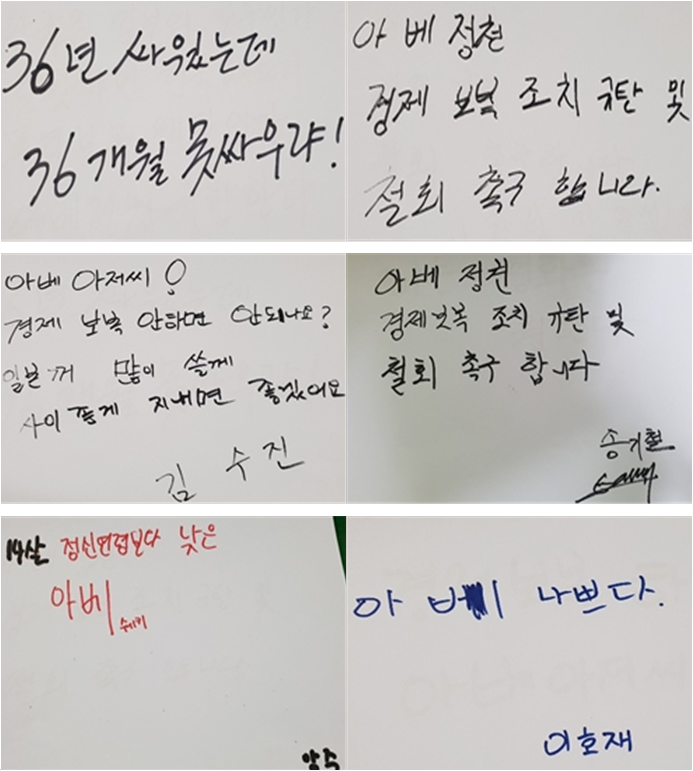 36년 싸웠는데
36개월 못싸우랴!
아베 정권
경제 보복 조치 규탄 및
철회 촉구 합니다.
아베 아저씨!
경제 보복 안하면 안되나요?
일본꺼 많이 쓸께
사이 좋게 지내면 좋겠어요
김 수진
아베 정권
경제보복 조치 규탄 및
철회 촉구 합니다
송기철
14살 정신연령보다 낮은
아베
쉐키
아 베 나쁘다.
이호재